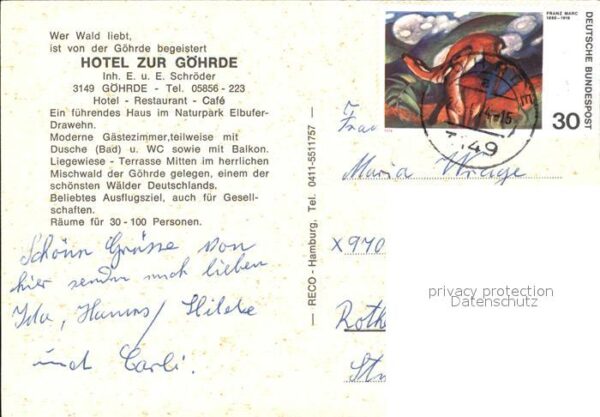 Wer Wald liebt,
ist von der Göhrde begeistert
HOTEL ZUR GÖHRDE
Inh. E. u. E. Schröder
3149 GÖHRDE - Tel. 05856 - 223
Hotel - Restaurant - Café
Ein führendes Haus im Naturpark Elbufer-
Drawehn.
Moderne Gästezimmer,teilweise mit
Dusche (Bad) u. WC sowie mit Balkon.
Liegewiese - Terrasse Mitten im herrlichen
Mischwald der Göhrde gelegen, einem der
schönsten Wälder Deutschlands.
Beliebtes Ausflugsziel, auch für Gesell-
schaften.
Räume für 30 - 100 Personen.
Schöne Grüsse von
hier senden mit lieben
Ida, Hanns/ Hilde
und Carli.
— RECO - Hamburg. Tel. 0411-5511757 —
FRANZ MARC
1880-1916
DEUTSCHE BUNDESPOST
30
Frau
Maria Wrage
X970
Roth
privacy protection
Datenschutz